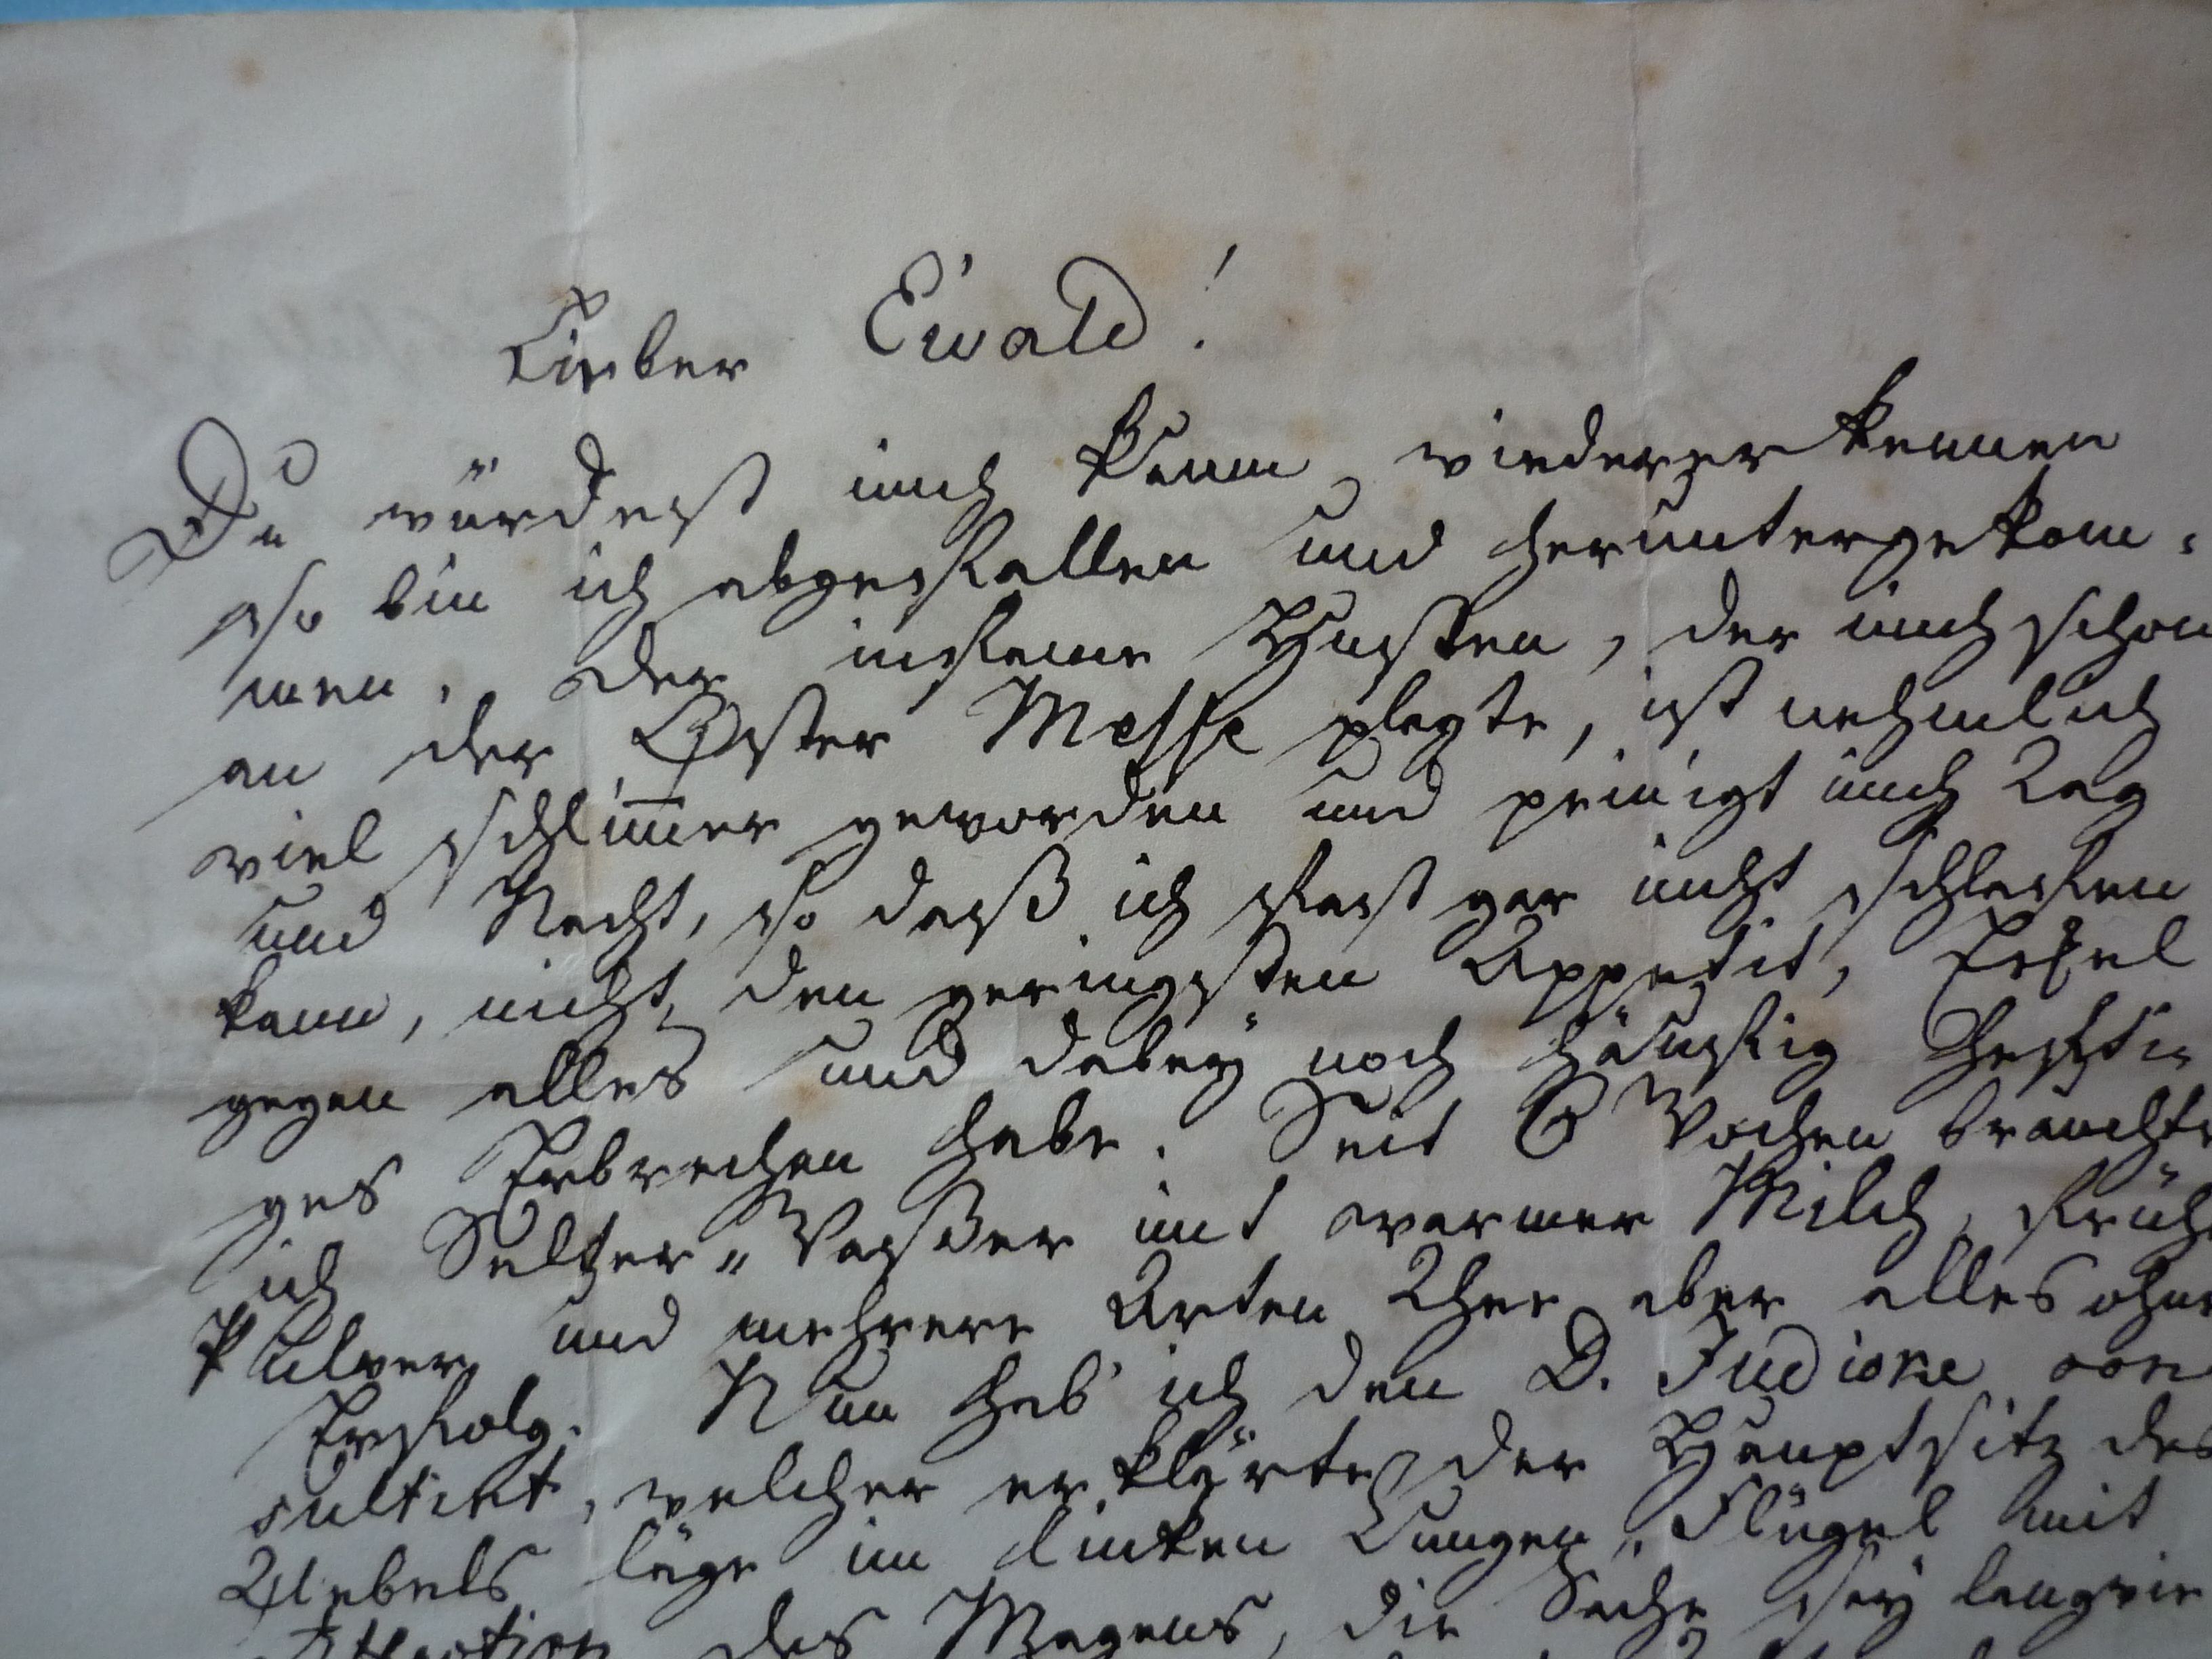 Lieber Ewald!
Du würdest mich kaum wiedererkennen
so bin ich abgefallen und heruntergekom-
men. Der infame Husten, der mich schon
an der Oster Messe plagte, ist nehmlich
viel schlim̅er geworden und peinigt mich Tag
und Nacht, so daß ich fast gar nicht schlafen
kann, nicht den geringsten Appetit, Eckel
gegen alles und dabeÿ noch häufig hefti-
ges Erbrechen habe. Seit 6 Wochen brauchte
ich Seltzer-Waßer mit warmer Milch, früh
Pulver und mehrere Arten Thee aber alles ohne
Erfolg. Nun hab' ich den D. con
sultirt, welcher erklärte, der Hauptsitz des
Uebels läge im linken Lungen-Flügel mit
Affection des Magens, die Sache seÿ langwie